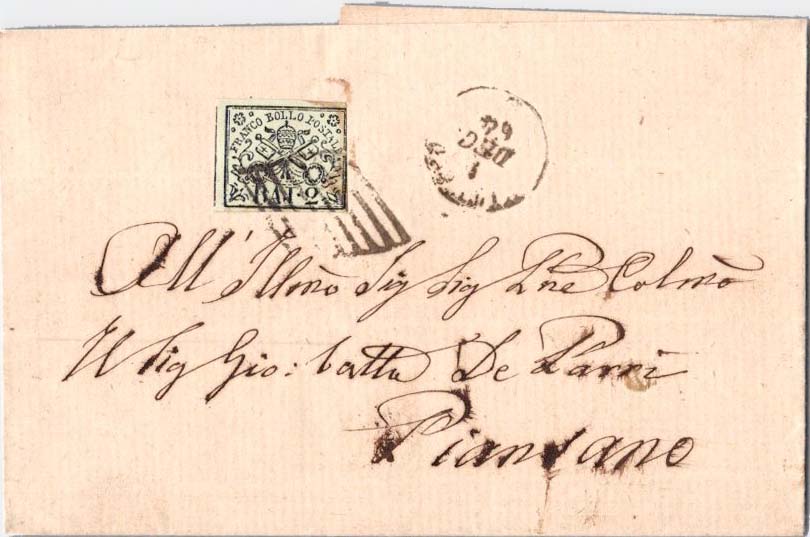 FRANCO BOLLO POSTALE
BAI. 2
1
DEC
64
All' Illmo Sig Sig Pne Colmo
Il Sig Gio: batta De Parri
Piansano